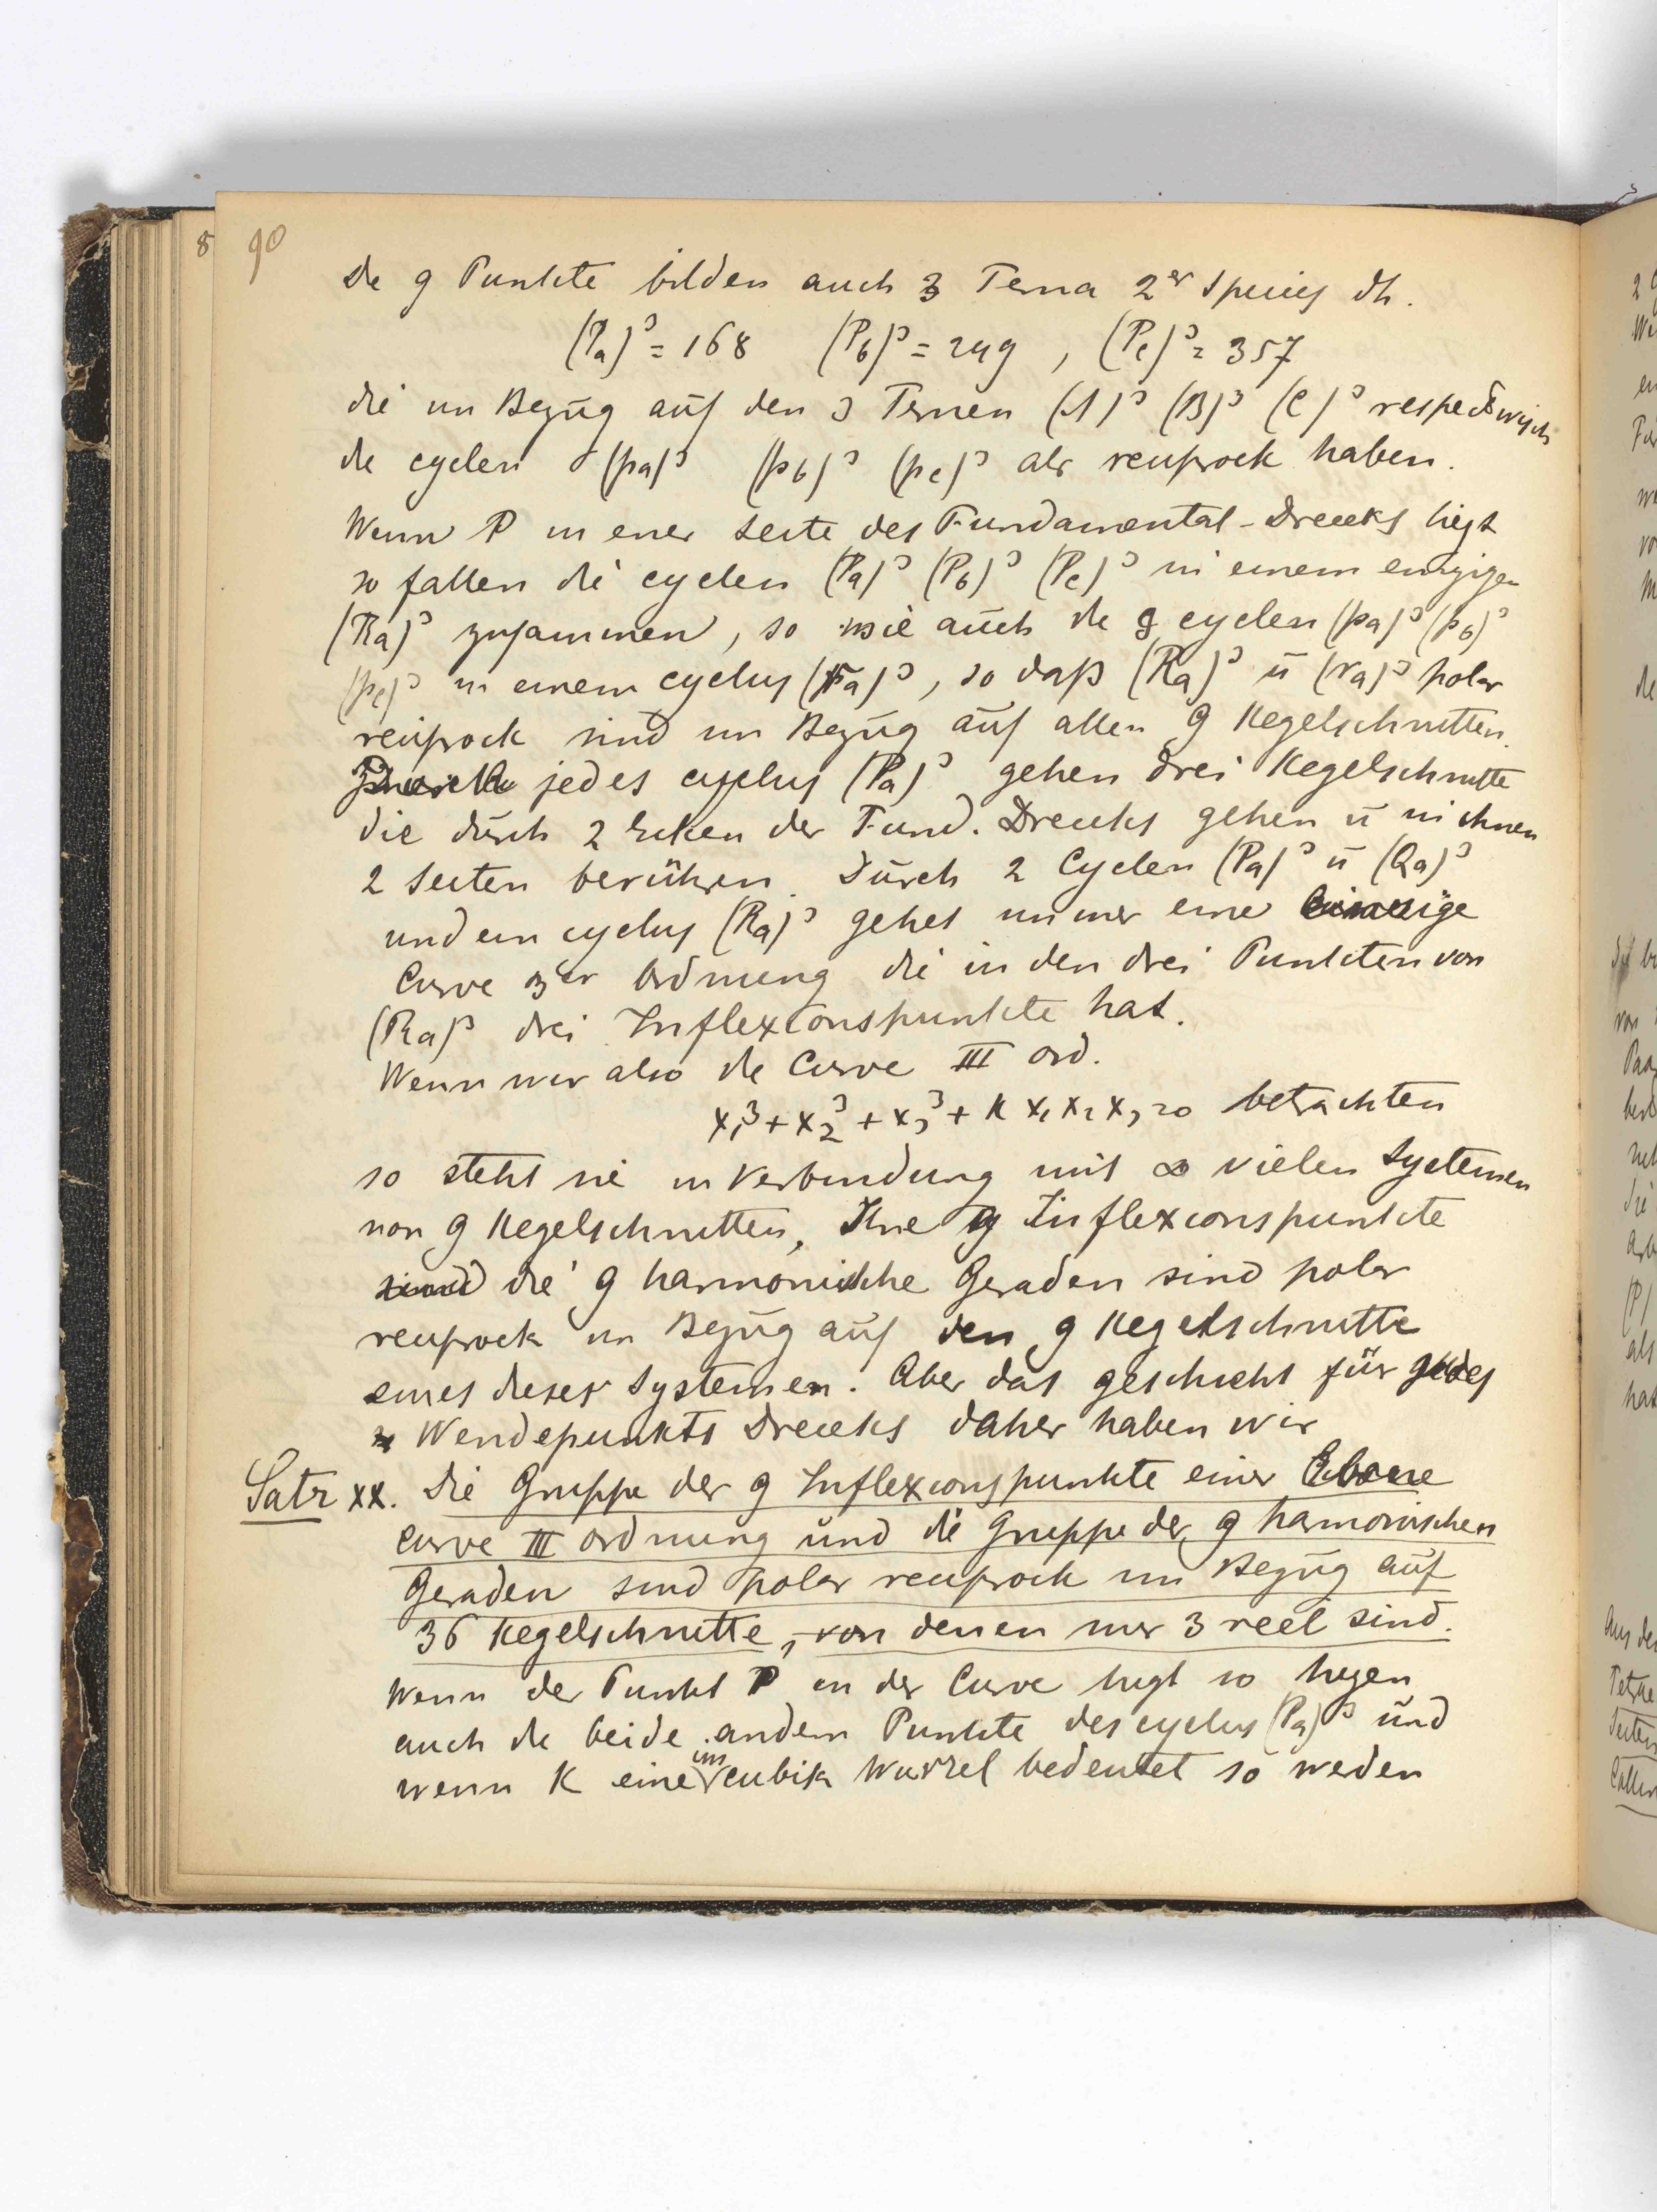 8 90
De 9 Punkte bilden auch 3 Terna 2er Species dh.
(Pa)³ = 168 (Pb)³ = 249 , (Pc)³ = 357
die im Bezūg aūf den 3 Ternen (A)³ (B)³ (C)³ respectivisch
de cyclen (pa)³ (pb)³ (pc)³ als reciprock haben.
Wenn P in einer Seite des Fundamental-Dreiecks liegt
so fallen die cyclen (Pa)³ (Pb)³ (Pc)³ in einem einzigen
(Ra)³ zusammen, so wie aūch de 9 cyclen (pa)³ (pb)³
(pc)³ in einem cyclus (ra)³, so daß (Ra)³ ū (ra)³ polar
reciprock sind im Bezūg aūf allen 9 Kegelschnitten.
Durch jedes cyclus (Pa)³ gehen drei Kegelschnitte
die dūrch 2 Ecken der Fund. Dreiecks gehen ū in ihnen
2 Seiten berühren. Dūrch 2 Cyclen (Pa)³ ū (Qa)³
und ein cyclus (Ra)³ gehet immer eine einzige
Curve 3er Ordnung die in den drei Punkten von
(Ra)³ drei Inflexionspunkte hat.
Wenn wir also de Curve III Ord.
x₁³ + x₂³ + x₃³ + K x₁ x₂ x₃ = 0 betrachten
so steht sie in Verbindung mit ∞ vielen Systemen
von 9 Kegelschnitten, Ihre 9 Inflexionspunkte
sind die 9 harmonische Geraden sind polar
reciprock im Bezūg aūf den 9 Kegelschnitte
eines dieser Systemen. Aber das geschieht für jedes
Wendepunkts Dreiecks daher haben wir
Satz xx. Die Gruppe der 9 Inflexionspunkte einer Ebene
Curve III Ordnung ūnd die Gruppe der 9 harmonischen
Geraden sind polar reciprock im Bezūg aūf
36 Kegelschnitte, von denen nur 3 reel sind.
Wenn der Punkt P in der Curve liegt so liegen
auch de beide andern Punkte des cyclus (Pa)³ ūnd
wenn K eine im cubik Wurzel bedeutet so werden